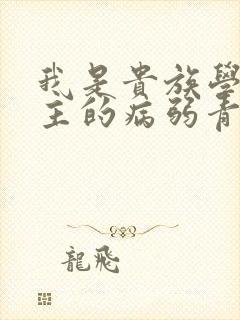 我是貴族學
主的病弱青
龍飛